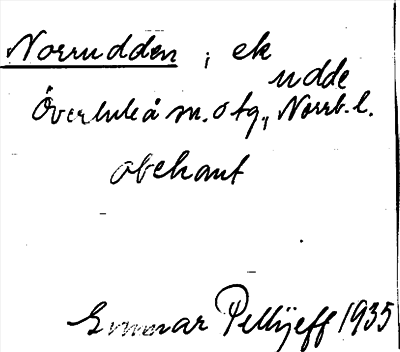 Norrudden, ek
udde
Överluleå sn. o tg., Norrb. l.
obekant
Gunnar Pellijeff 1935